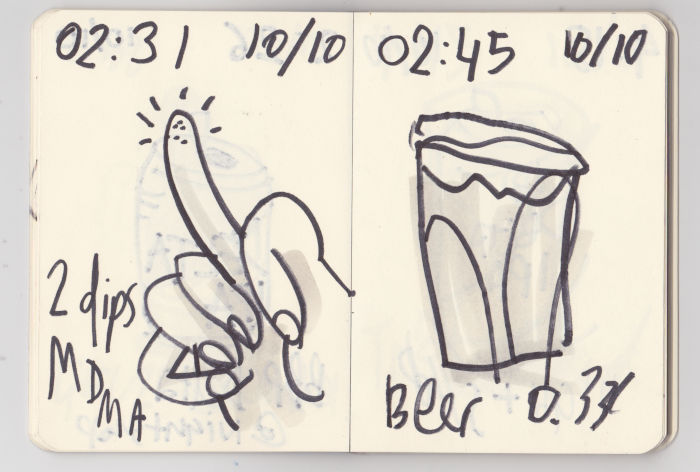 02:31 10/10
2 dips
MDMA
02:45 10/10
Beer 0.33l